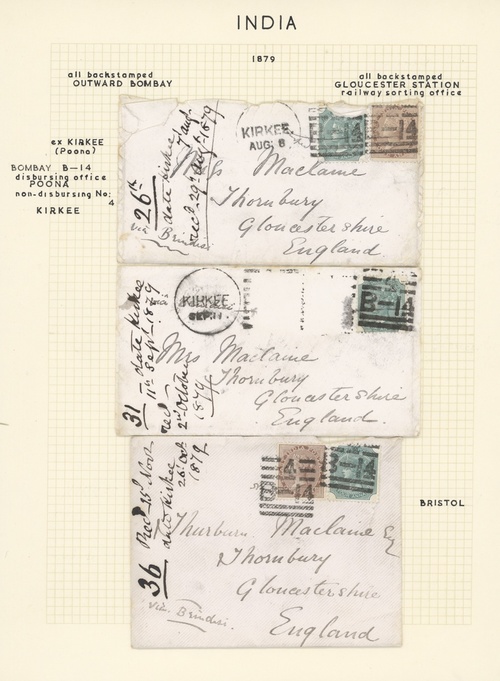 INDIA
1879
all backstamped
OUTWARD BOMBAY
all backstamped
GLOUCESTER STATION
railway sorting office
ex KIRKEE
(Poona)
BOMBAY B-14
disbursing office
POONA
non-disbursing No:
4
KIRKEE
26th
date Kirkee
7 Aug.
recd. 29th Aug. 1879
via Brindisi
KIRKEE
AUG. 8
B-14
Miss Maclaine
Thornbury
Gloucestershire
England
31
date Kirkee
11th Sept. 1879
recd
2nd October
1879
KIRKEE
SEP. 11
B-14
Mrs Maclaine
Thornbury
Gloucestershire
England.
36
Recd 25 Novr
date Kirkee
26 Oct.
1879
via. Brindisi.
4
B-14
B-14
Thurburn Maclaine Esq
Thornbury
Gloucestershire
England
BRISTOL